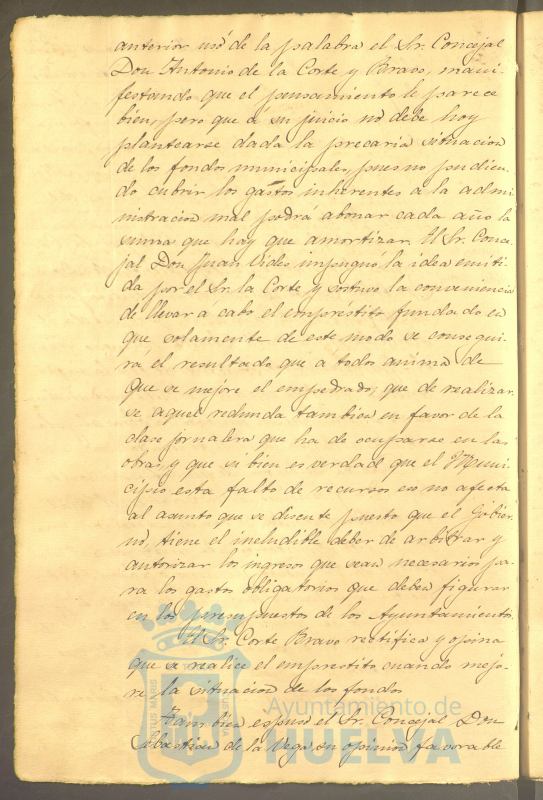 anterior usó de la palabra el Sr. Concejal
Don Antonio de la Corte y Bravo, mani-
festando que el pensamiento le parece
bien, pero que a su juicio no debe hoy
plantearse dada la precaria situacion
de los fondos municipales, pues no pudien-
do cubrir los gastos inherentes a la admi-
nistracion mal podrá abonar cada año la
suma que hay que amortizar. El Sr. Conce-
jal Don Juan Cides impugnó la idea emiti-
da por el Sr. la Corte y sostuvo la conveniencia
de llevar a cabo el empréstito fundado en
que solamente de este modo se consegui-
rá el resultado que a todos anima de
que se mejore el empedrado; que de realizar-
se aquel redunda tambien en favor de la
clase jornalera que ha de ocuparse en las
obras, y que si bien es verdad que el Muni-
cipio esta falto de recursos eso no afecta
al asunto que se discute puesto que el Gobier-
no, tiene el ineludible deber de arbitrar y
autorizar los ingresos que sean necesarios pa-
ra los gastos obligatorios que deben figurar
en los presupuestos de los Ayuntamientos.
El Sr. Corte Bravo rectifica y opina
que se realice el emprestito cuando mejo-
re la situacion de los fondos
Tambien expuso el Sr. Concejal Don
Sebastian de la Vega, su opinion favorable
Ayuntamiento de
HUELVA